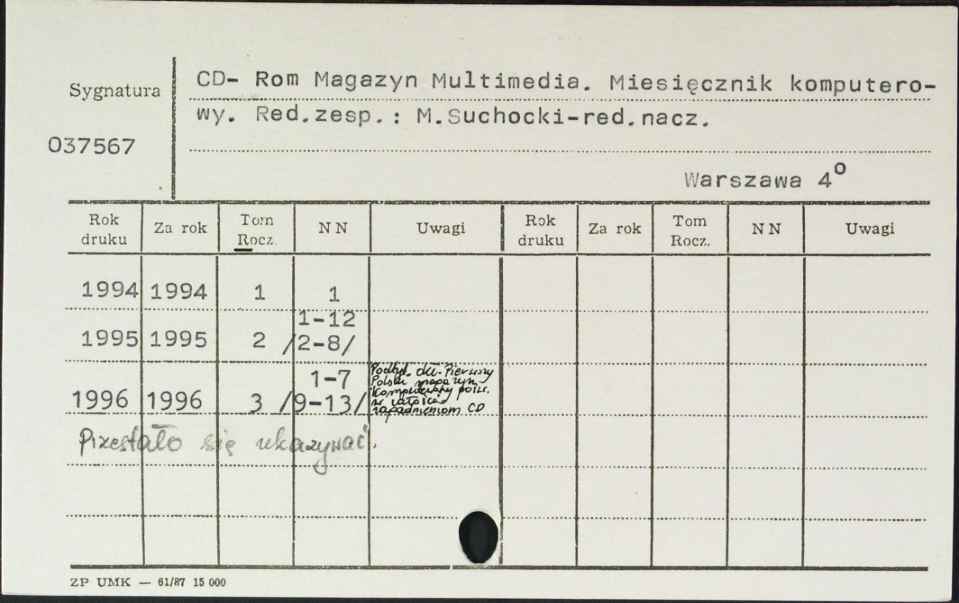 CD- Rom Magazyn Multimedia. Miesięcznik komputero-
Sygnatura
wy. Red.zesp.: M.Suchocki-red.nacz.
037567
Warszawa 4°
Rok druku Za rok Tom Rocz. NN Uwagi Rok druku Za rok Tom Rocz. NN Uwagi
1994 1994 1 1
1-12
1995 1995 2 /2-8/
1-7
1996 1996 3 /9-13/
Podtyt. dod. Pierwszy
Polski magazyn
Komputerowy pośw.
w całości
zagadnieniom CD
Przestało się ukazywać.
ZP UMK — 61/87 15 000